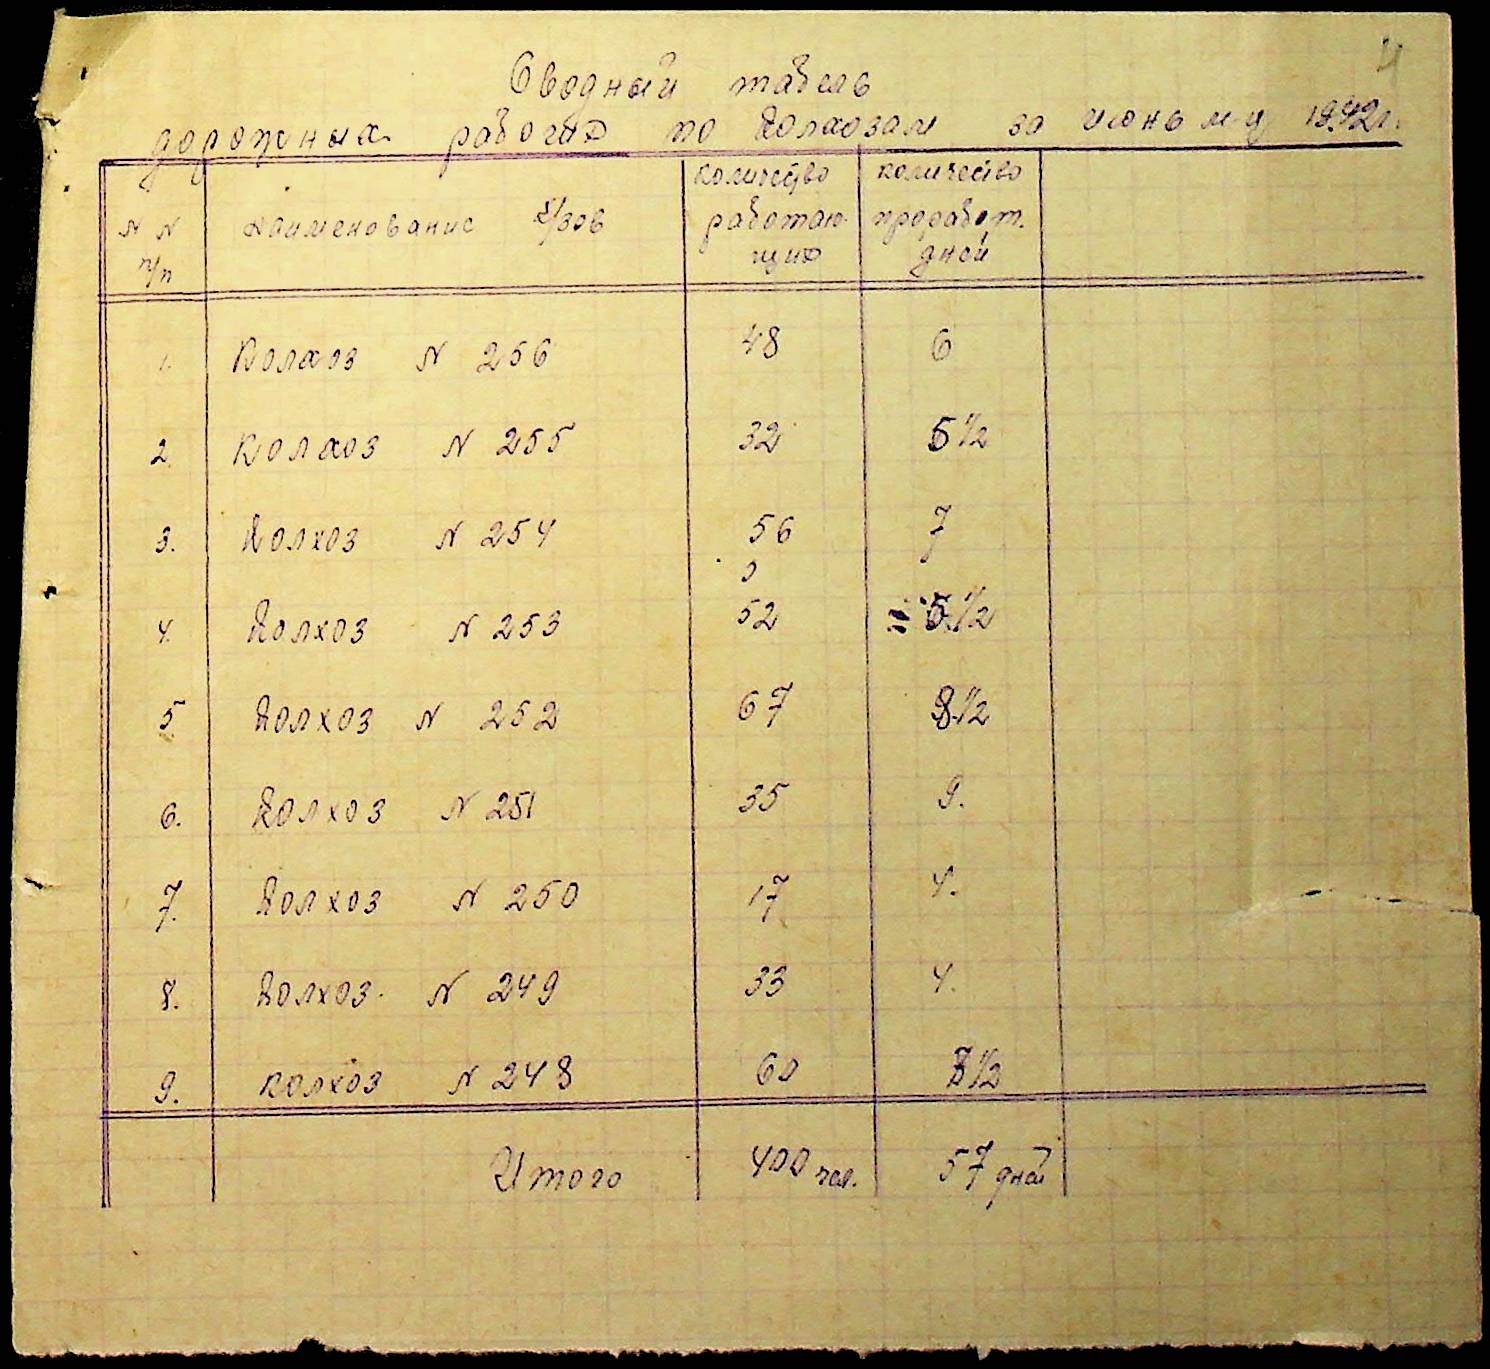 4
Сводный табель
дорожных рабочих по колхозам за июнь м-ц 1942г.
N N п/п наименование к/зов количество работаю-щих количество проработ. дней
1. Колхоз N 256 48 6
2. Колхоз N 255 32 5 1/2
3. Колхоз N 254 56 7
4. Колхоз N 253 52 5 1/2
5 Колхоз N 252 67 8 1/2
6. Колхоз N 251 35 9.
7. Колхоз N 250 17 4.
8. Колхоз N 249 33 4.
9. Колхоз N 248 60 7 1/2
Итого 400 чел. 57 дней